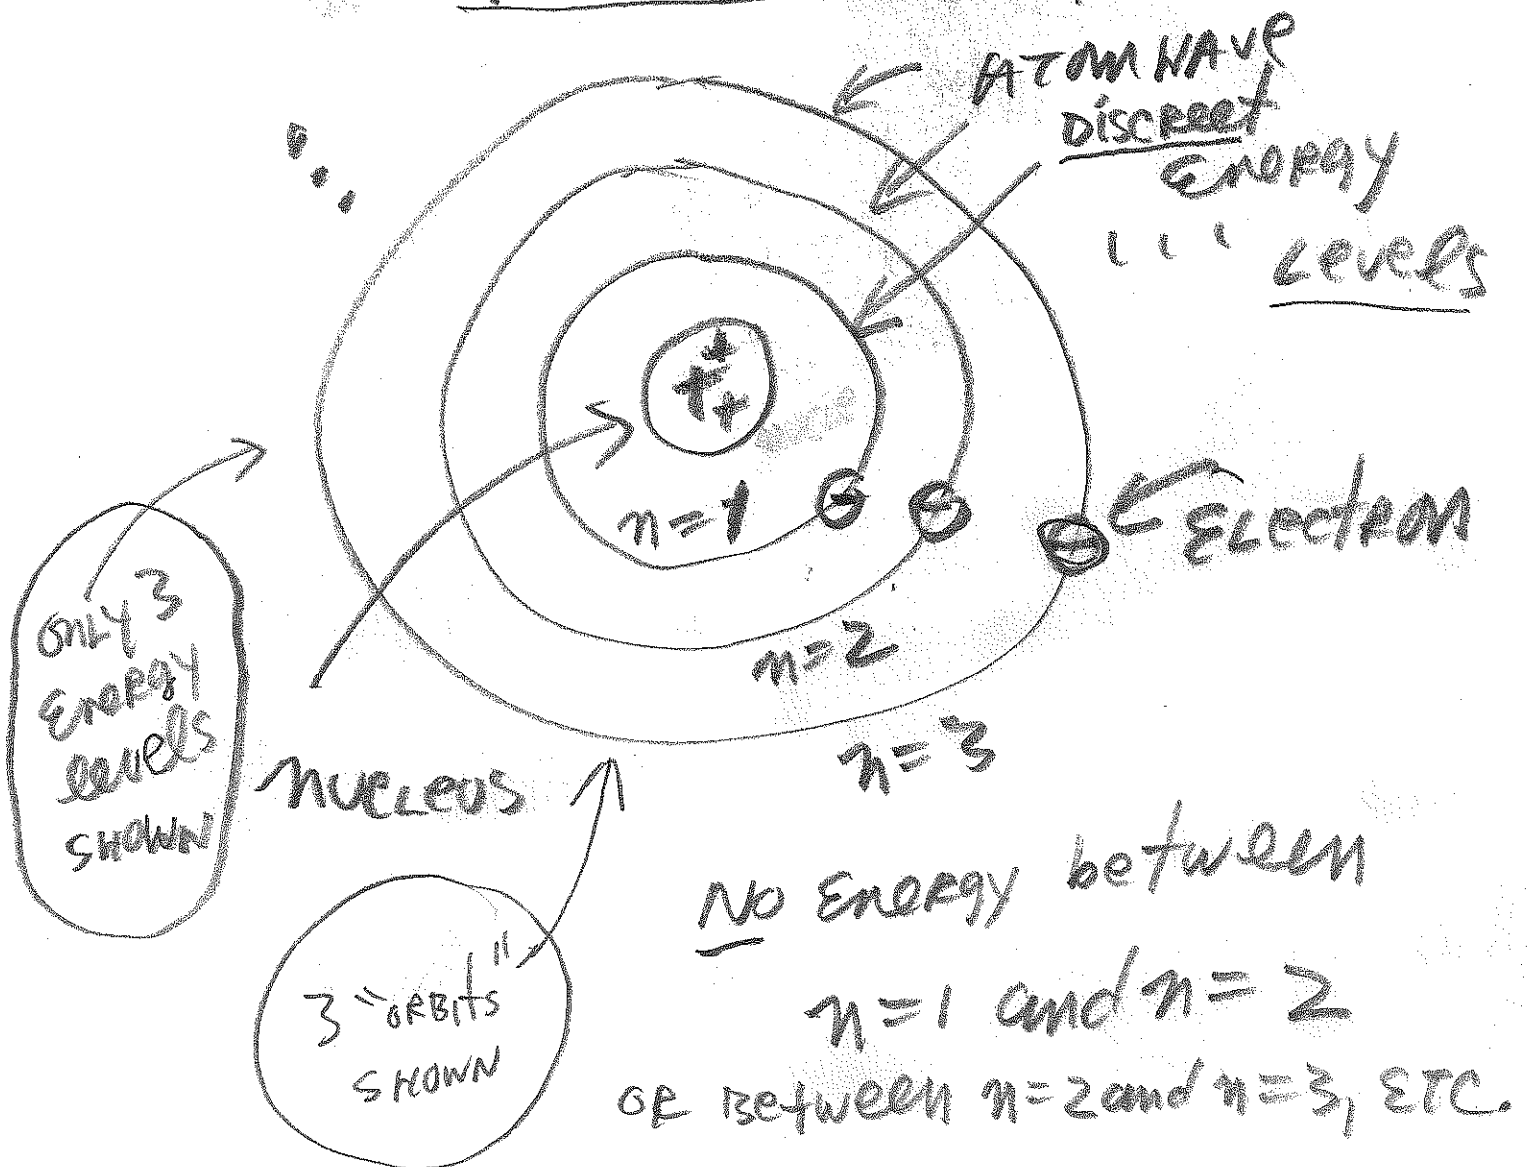 ATOM HAVE
DISCREET
ENERGY
LEVELS
+
+
+
n=1
n=2
n=3
-
-
-
ELECTRON
ONLY 3
ENERGY
levels
SHOWN
NUCLEUS
3 "ORBITS"
SHOWN
NO ENERGY between
n=1 and n=2
OR BETWEEN n=2 and n=3, ETC.